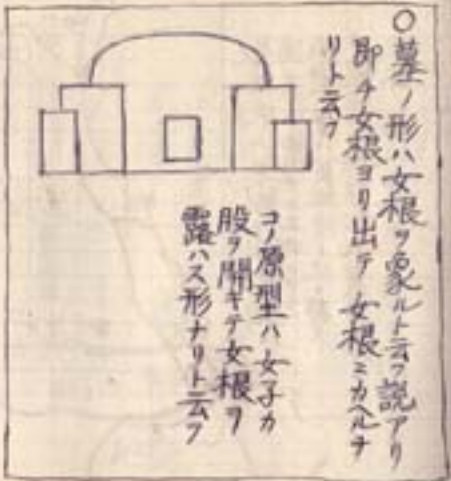 〇墓ノ形ハ女根ヲ象ルト云フ説アリ
即チ女根ヨリ出テ女根ニカヘルナ
リト云フ
コノ原型ハ女子カ
股ヲ開キテ女根ヲ
露ハス形ナリト云フ